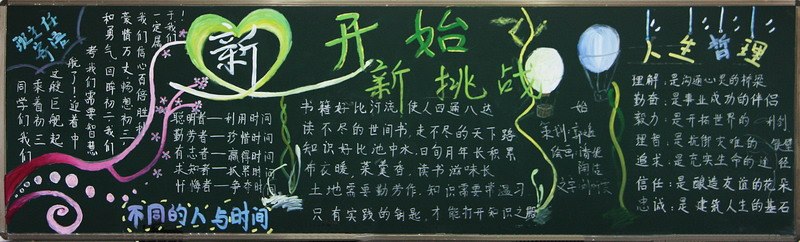 班主任
寄语
同学们我们
乘着初三
这艘巨舰起
航了!迎着中
考我们需要智慧
和勇气 回眸初二,我们
豪情万丈,畅想初三
我们信心百倍 胜利
一定属
于我们
新
开始
新挑战
聪明者——利用时间
勤劳者——珍惜时间
有志者——赢得时间
不同的人与时间
书籍好比河流,使人四通八达
读不尽的世间书,走不尽的天下路
知识好比池中水,日旬月年长积累
布衣暖,菜羹香,读书滋味长
土地需要勤劳作,知识需要常温习
只有实践的钥匙,才能打开知识之路
人生哲理
理解:是沟通心灵的桥梁
勤奋:是事业成功的伴侣
毅力:是开拓世界的利剑
理智:是抗衡灾难的
追求:是充实生命的途径
信任:是酿造友谊的花朵
忠诚:是建筑人生的基石